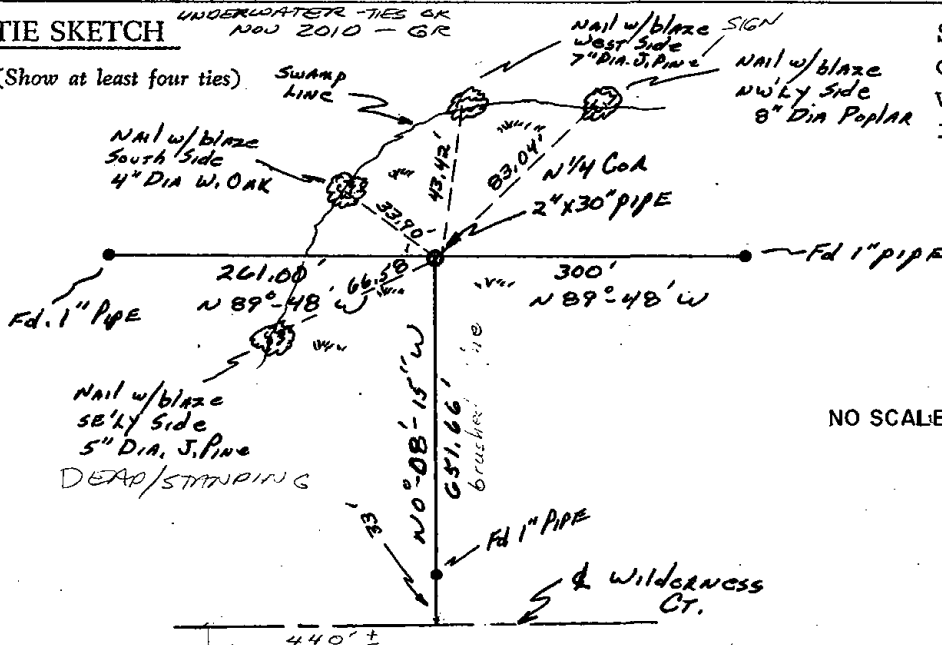 TIE SKETCH
UNDERWATER - TIES OK
NOV 2010 - GR
(Show at least four ties)
SWAMP
LINE
NAIL w/blaze
West Side
7" DIA. J. PINE
SIGN
NAIL w/blaze
NW'LY Side
8" DIA POPLAR
NAIL w/blaze
South Side
4" DIA W. OAK
43.42'
83.04'
33.90'
N 1/4 COR
2"X30" PIPE
Fd. 1" PIPE
261.00'
N 89°-48' W
66.58'
300'
N 89°-48' W
Fd 1" PIPE
NAIL w/blaze
SE'LY Side
5" DIA. J. PINE
DEAD/STANDING
N 0°-08'-15" W
651.66'
brushed line
NO SCALE
33'
Fd 1" PIPE
℄ WILDERNESS
CT.
440' ±